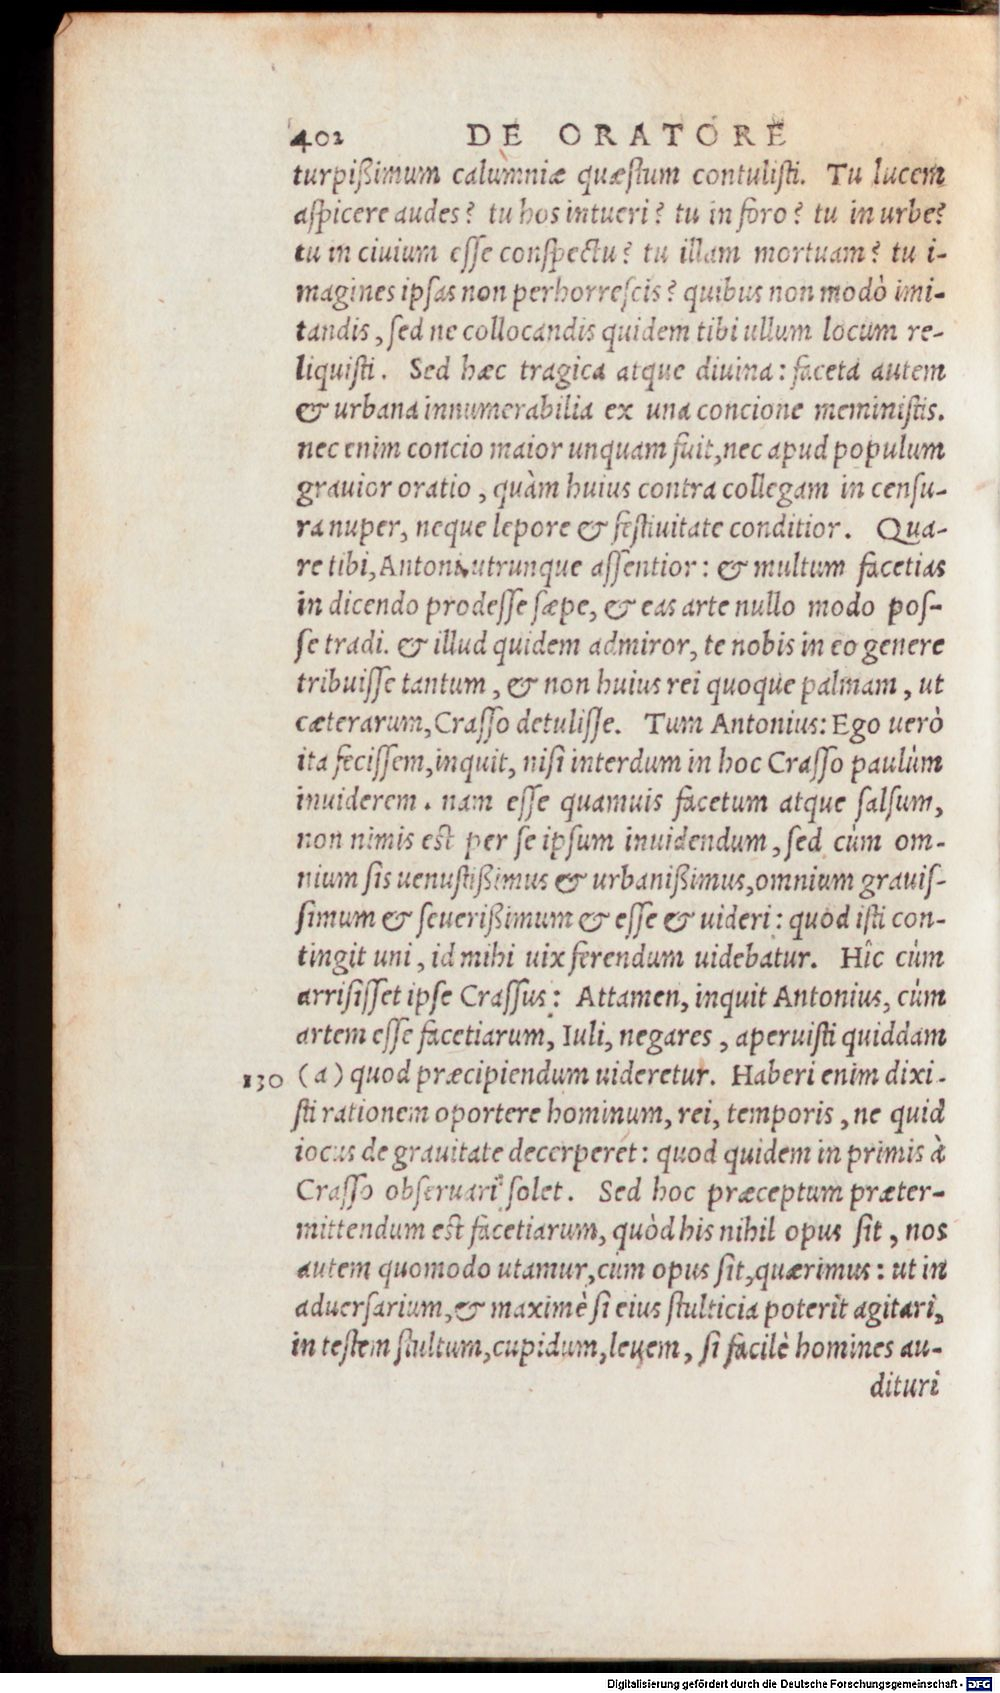 402 DE ORATORE
turpißimum calumniæ quæstum contulisti. Tu lucem
aspicere audes? tu hos intueri? tu in foro? tu in urbe?
tu in ciuium esse conspectu? tu illam mortuam? tu i-
magines ipsas non perhorrescis? quibus non modò imi-
tandis, sed ne collocandis quidem tibi ullum locum re-
liquisti. Sed hæc tragica atque diuina: faceta autem
& urbana innumerabilia ex una concione meministis.
nec enim concio maior unquam fuit, nec apud populum
grauior oratio, quàm huius contra collegam in censu-
ra nuper, neque lepore & festiuitate conditior. Qua-
re tibi, Antoni, utrunque assentior: & multum facetias
in dicendo prodesse sæpe, & eas arte nullo modo pos-
se tradi. & illud quidem admiror, te nobis in eo genere
tribuisse tantum, & non huius rei quoque palmam, ut
cæterarum, Crasso detulisse. Tum Antonius: Ego uerò
ita fecissem, inquit, nisi interdum in hoc Crasso paulùm
inuiderem. nam esse quamuis facetum atque salsum,
non nimis est per se ipsum inuidendum, sed cùm om-
nium sis uenustißimus & urbanißimus, omnium grauis-
simum & seuerißimum & esse & uideri: quòd isti con-
tingit uni, id mihi uix ferendum uidebatur. Hîc cùm
arrisisset ipse Crassus: Attamen, inquit Antonius, cùm
artem esse facetiarum, Iuli, negares, aperuisti quiddam
130 (a) quod præcipiendum uideretur. Haberi enim dixi-
sti rationem oportere hominum, rei, temporis, ne quid
iocus de grauitate decerperet: quod quidem in primis à
Crasso obseruari solet. Sed hoc præceptum præter-
mittendum est facetiarum, quòd his nihil opus sit, nos
autem quomodo utamur, cùm opus sit, quærimus: ut in
aduersarium, & maximè si eius stulticia poterit agitari,
in testem stultum, cupidum, leuem, si facilè homines au-
dituri
Digitalisierung gefördert durch die Deutsche Forschungsgemeinschaft - DFG